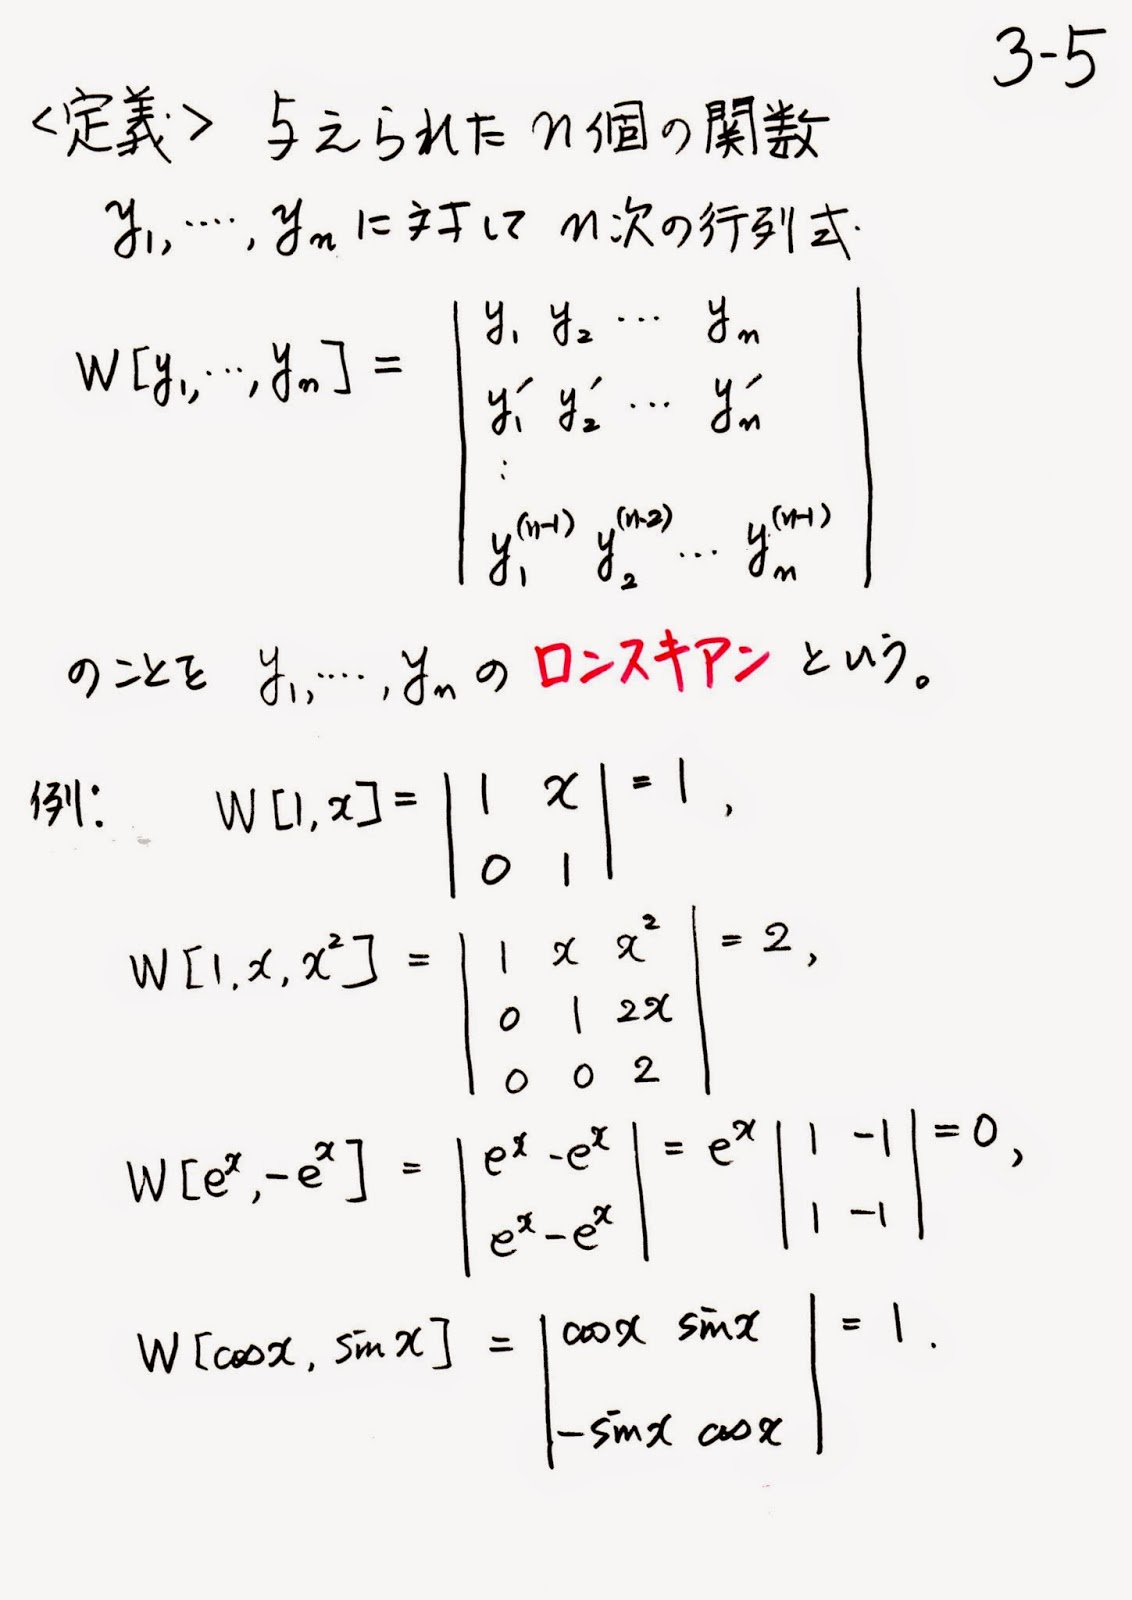 3-5
<定義> 与えられた n個の関数
y₁, ‥‥, yₙ に対して n次の行列式
W[y₁, ‥‥, yₙ] = | y₁ y₂ … yₙ |
| y₁′ y₂′ … yₙ′ |
⋮
| y₁⁽ⁿ⁻¹⁾ y₂⁽ⁿ⁻²⁾ … yₙ⁽ⁿ⁻¹⁾ |
のことを y₁, ‥‥, yₙ の ロンスキアン という。
例: W[1, x] = | 1 x | = 1 ,
| 0 1 |
W[1, x, x²] = | 1 x x² | = 2 ,
| 0 1 2x |
| 0 0 2 |
W[eˣ, -eˣ] = | eˣ -eˣ | = eˣ | 1 -1 | = 0 ,
| eˣ -eˣ | | 1 -1 |
W[cosx, sinx] = | cosx sinx | = 1 .
| -sinx cosx |